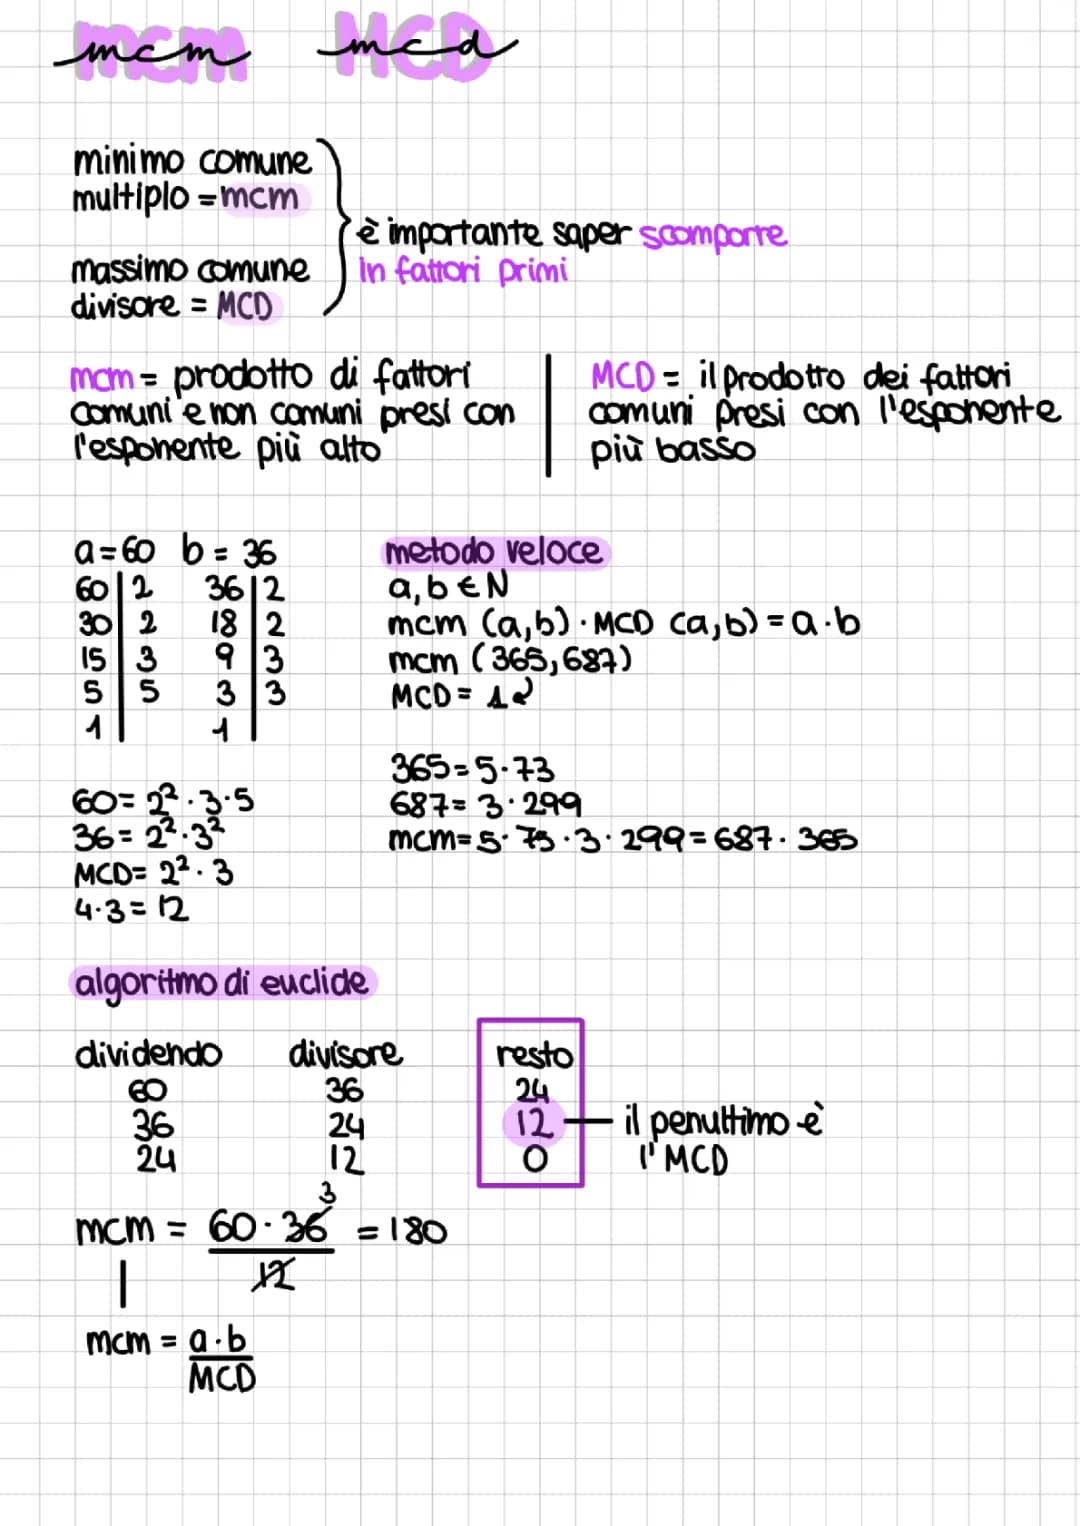 mcm MCD
minimo comune
multiplo = mcm
massimo comune
divisore = MCD
è importante saper scomporre
in fattori primi
mcm = prodotto di fattori
comuni e non comuni presi con
l'esponente più alto
MCD = il prodotto dei fattori
comuni presi con l'esponente
più basso
a = 60 b = 36
60 | 2 36 | 2
30 | 2 18 | 2
15 | 3 9 | 3
5 | 5 3 | 3
1 | 1 |
60 = 2² · 3 · 5
36 = 2² · 3²
MCD = 2² · 3
4 · 3 = 12
metodo veloce
a, b ∈ N
mcm (a, b) · MCD (a, b) = a · b
mcm (365, 687)
MCD = 1
365 = 5 · 73
687 = 3 · 299
mcm = 5 · 73 · 3 · 299 = 687 · 365
algoritmo di euclide
dividendo divisore resto
60 36 24
36 24 12
24 12 0
il penultimo è
l'MCD
3
mcm = 60 · 36 = 180
12
mcm = a · b
MCD